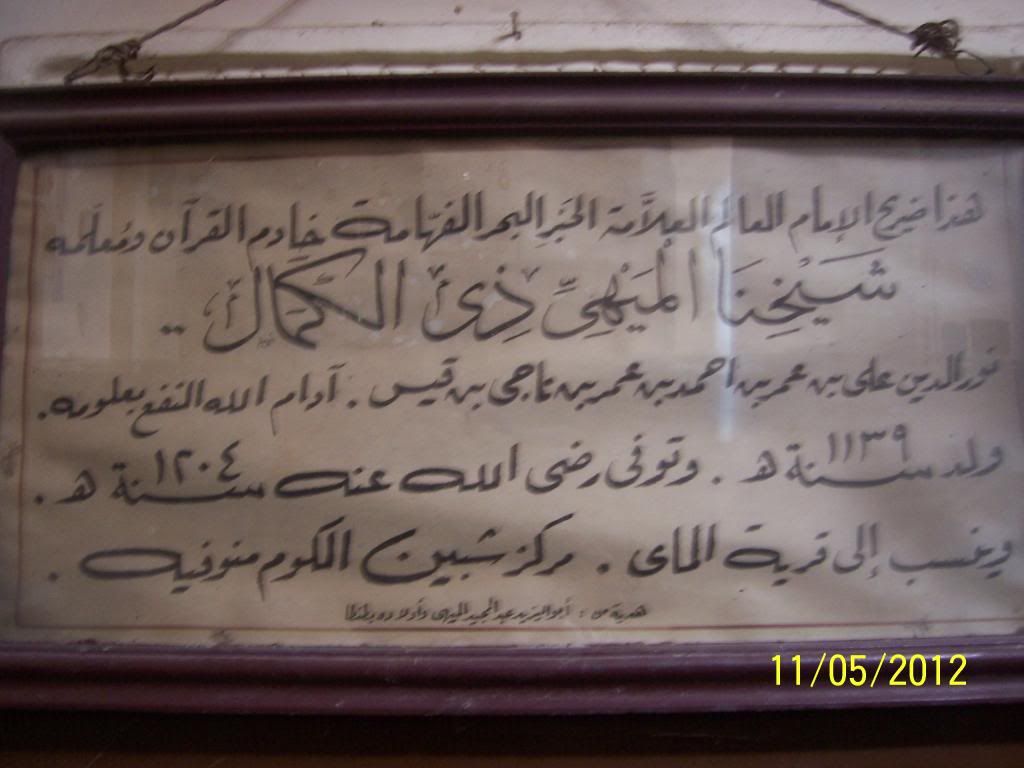 هذا ضريح الإمام العالم العلاَّمة الحَبر البحر الفهّامة خادم القرآن ومُعلّمه
شَيْخِنَا الْمَيْهِىِّ ذِى الْكَمَالْ ..
نور الدين على بن عمر بن احمد بن عمر بن ناجى بن قيس . آدام الله النفع بعلومه .
ولد سنة ١١٣٩ هـ . وتوفى رضى الله عنه سنة ١٢٠٤ هـ .
وينسب إلى قرية الماى . مركز شبين الكوم منوفيه .
هدية من : أبو اليزيد عبد المجيد الميهى وأولاده بطنطا
11/05/2012